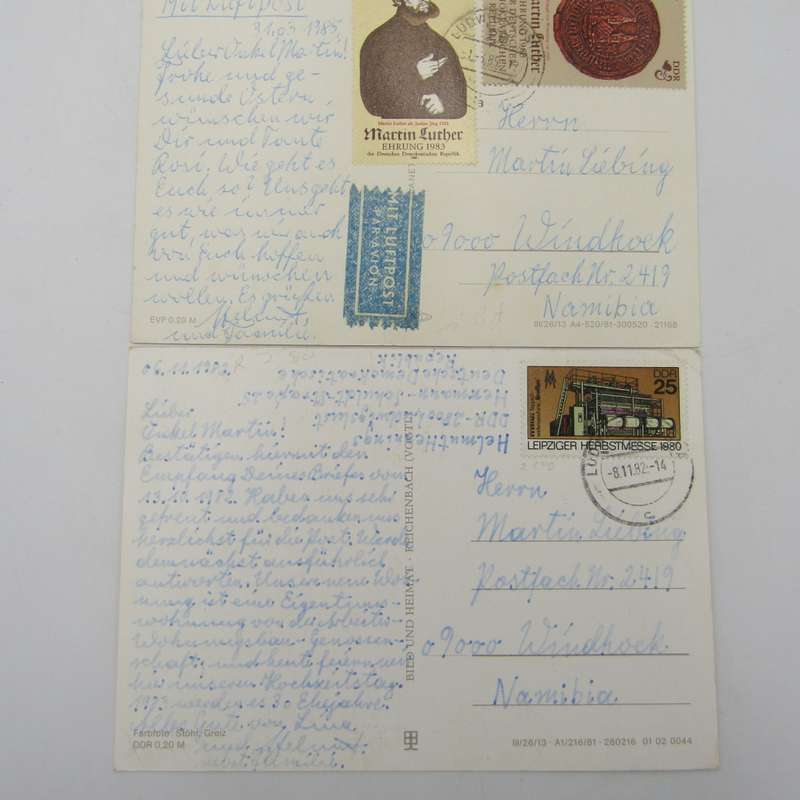 Mit Luftpost
31.03 1985
Lieber Onkel Martin!
Frohe und ge-
sunde Ostern
wünschen wir
Dir und Tante
Rosi. Wie geht es
Euch so? Uns geht
es wie immer
gut, was wir auch
von Euch hoffen
und wünschen
wollen. Es grüßen
Helmut
und Familie.
EVP 0,20 M
Martin Luther
EHRUNG 1983
der Deutschen Demokratischen Republik
Martin Luther
DDR
MIT LUFTPOST
PAR AVION
Herrn
Martin Liebing
09000 Windhoek
Postfach Nr. 2419
Namibia
III/26/13 A4-520/81-300520 21168
06.11.1982
Lieber
Onkel Martin!
Bestätigen hiermit den
Empfang Deines Briefes vom
13.10.1982. Haben uns sehr
gefreut und bedanken uns
herzlichst für die Post. Werde
demnächst ausführlich
antworten. Unsere neue Woh-
nung ist eine Eigentums-
wohnung von der Arbeiter-
Wohnungsbau-Genossen-
schaft, und heute feiern wir
hier unseren Hochzeitstag.
1983 werden es 30 Ehejahre.
Alles Gute von Lina
und Helmut
nebst Familie.
Farbfoto: Stöhl, Greiz
DDR 0,20 M
Helmut Hennings
DDR-2800 Ludwigslust
Hermann-Schuldt-Straße 25
Deutsche Demokratische
Republik
BILD UND HEIMAT · REICHENBACH (VOGTL)
DDR
25
LEIPZIGER HERBSTMESSE 1980
-8.11.82-14
c
Herrn
Martin Liebing
Postfach Nr. 2419
09000 Windhoek
Namibia.
III/26/13 · A1/216/81 · 280216 01 02 0044